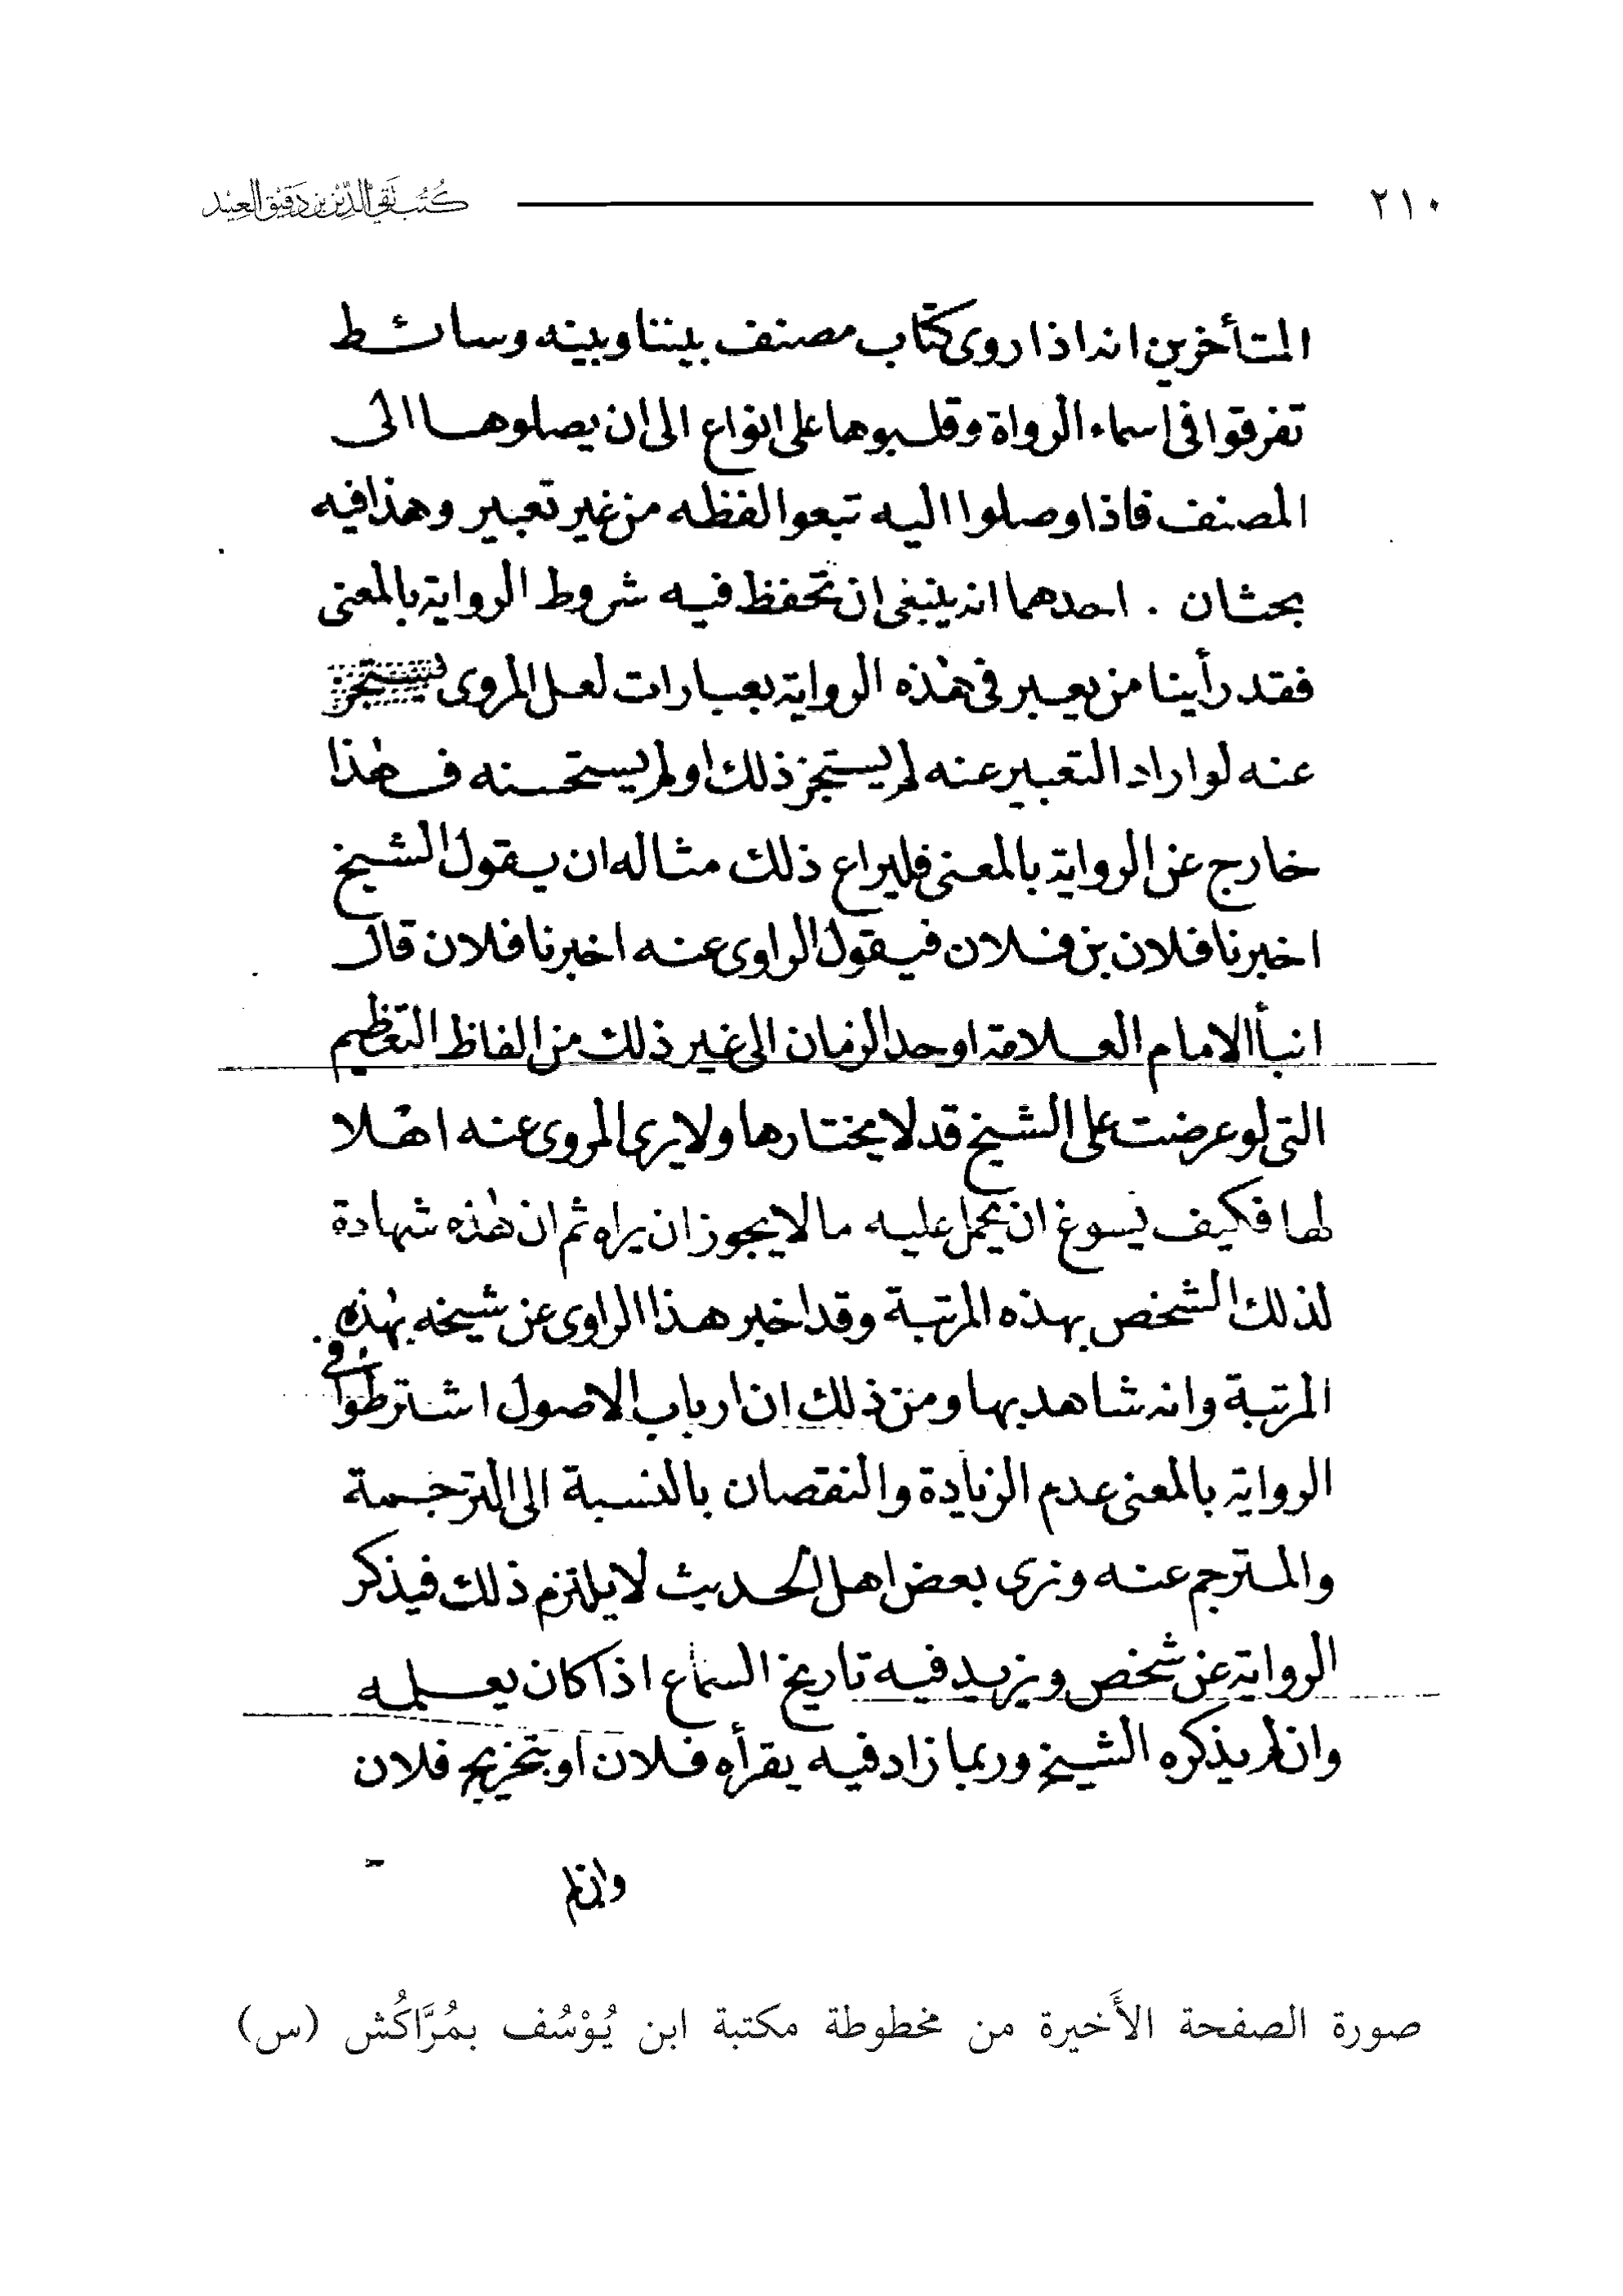 ٢١٠ كُتُب تَقِيّ الدِّيْن بن دَقِيْق العِيْد
المتأخرين انه اذا روى كتاب مصنف بيننا وبينه وسائط
تفرقوا فى اسماء الرواة وقلبوها على انواع الى ان يصلوها الى
المصنف فاذا وصلوا اليه تبعوا لفظه من غير تعبير وهذا فيه
بحثان . احدهما انه ينبغى ان تحفظ فيه شروط الرواية بالمعنى
فقد رأينا من يعبر فى هذه الرواية بعبارات لعل المروى يستجز
عنه لو اراد التعبير عنه لم يستجز ذلك او لم يستحسنه فهذا
خارج عن الرواية بالمعنى فليراع ذلك مثاله ان يقول الشيخ
اخبرنا فلان بن فلان فيقول الراوى عنه اخبرنا فلان قال
انبأ الامام العلامة اوحد الزمان الى غير ذلك من الفاظ التعظيم
التى لو عرضت على الشيخ قد لا يختارها ولا يرى المروى عنه اهلا
لها فكيف يسوغ ان يحمل عليه ما لا يجوز ان يراه ثم ان هذه شهادة
لذلك الشخص بهذه المرتبة وقد اخبر هذا الراوى عن شيخه بهذه
المرتبة وانه شاهد بها ومن ذلك ان ارباب الاصول اشترطوا فى
الرواية بالمعنى عدم الزيادة والنقصان بالنسبة الى الترجمة
والمترجم عنه ونرى بعض اهل الحديث لا يلتزم ذلك فيذكر
الرواية عن شخص ويزيد فيه تاريخ السماع اذا كان يعلمه
وان لم يذكره الشيخ وربما زاد فيه يقرأه فلان او بتخريج فلان
وان لم
صورة الصفحة الأَخيرة من مخطوطة مكتبة ابن يُوْسُف بمُرَّاكُش (س)